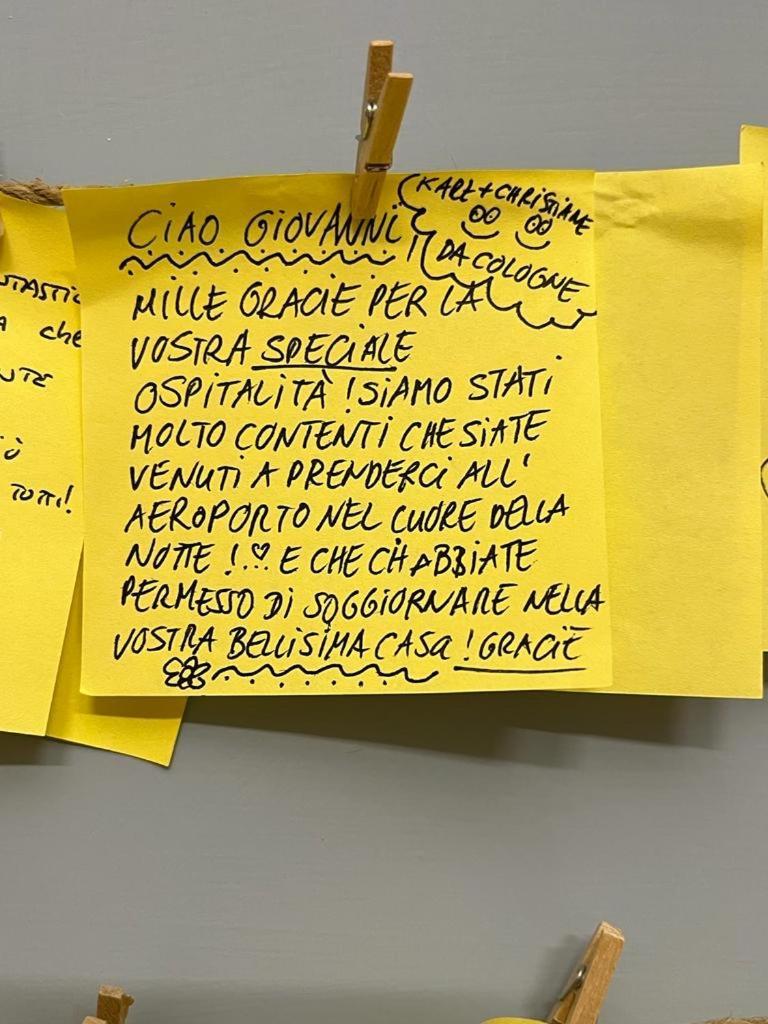 CIAO GIOVANNI
KARL + CHRISTIANE
DA COLOGNE
MILLE GRACIE PER LA
VOSTRA SPECIALE
OSPITALITÀ ! SIAMO STATI
MOLTO CONTENTI CHE SIATE
VENUTI A PRENDERCI ALL'
AEROPORTO NEL CUORE DELLA
NOTTE ! ♡ E CHE CI ABBIATE
PERMESSO DI SOGGIORNARE NELLA
VOSTRA BELLISIMA CASA ! GRACIE
che
TUTTI!